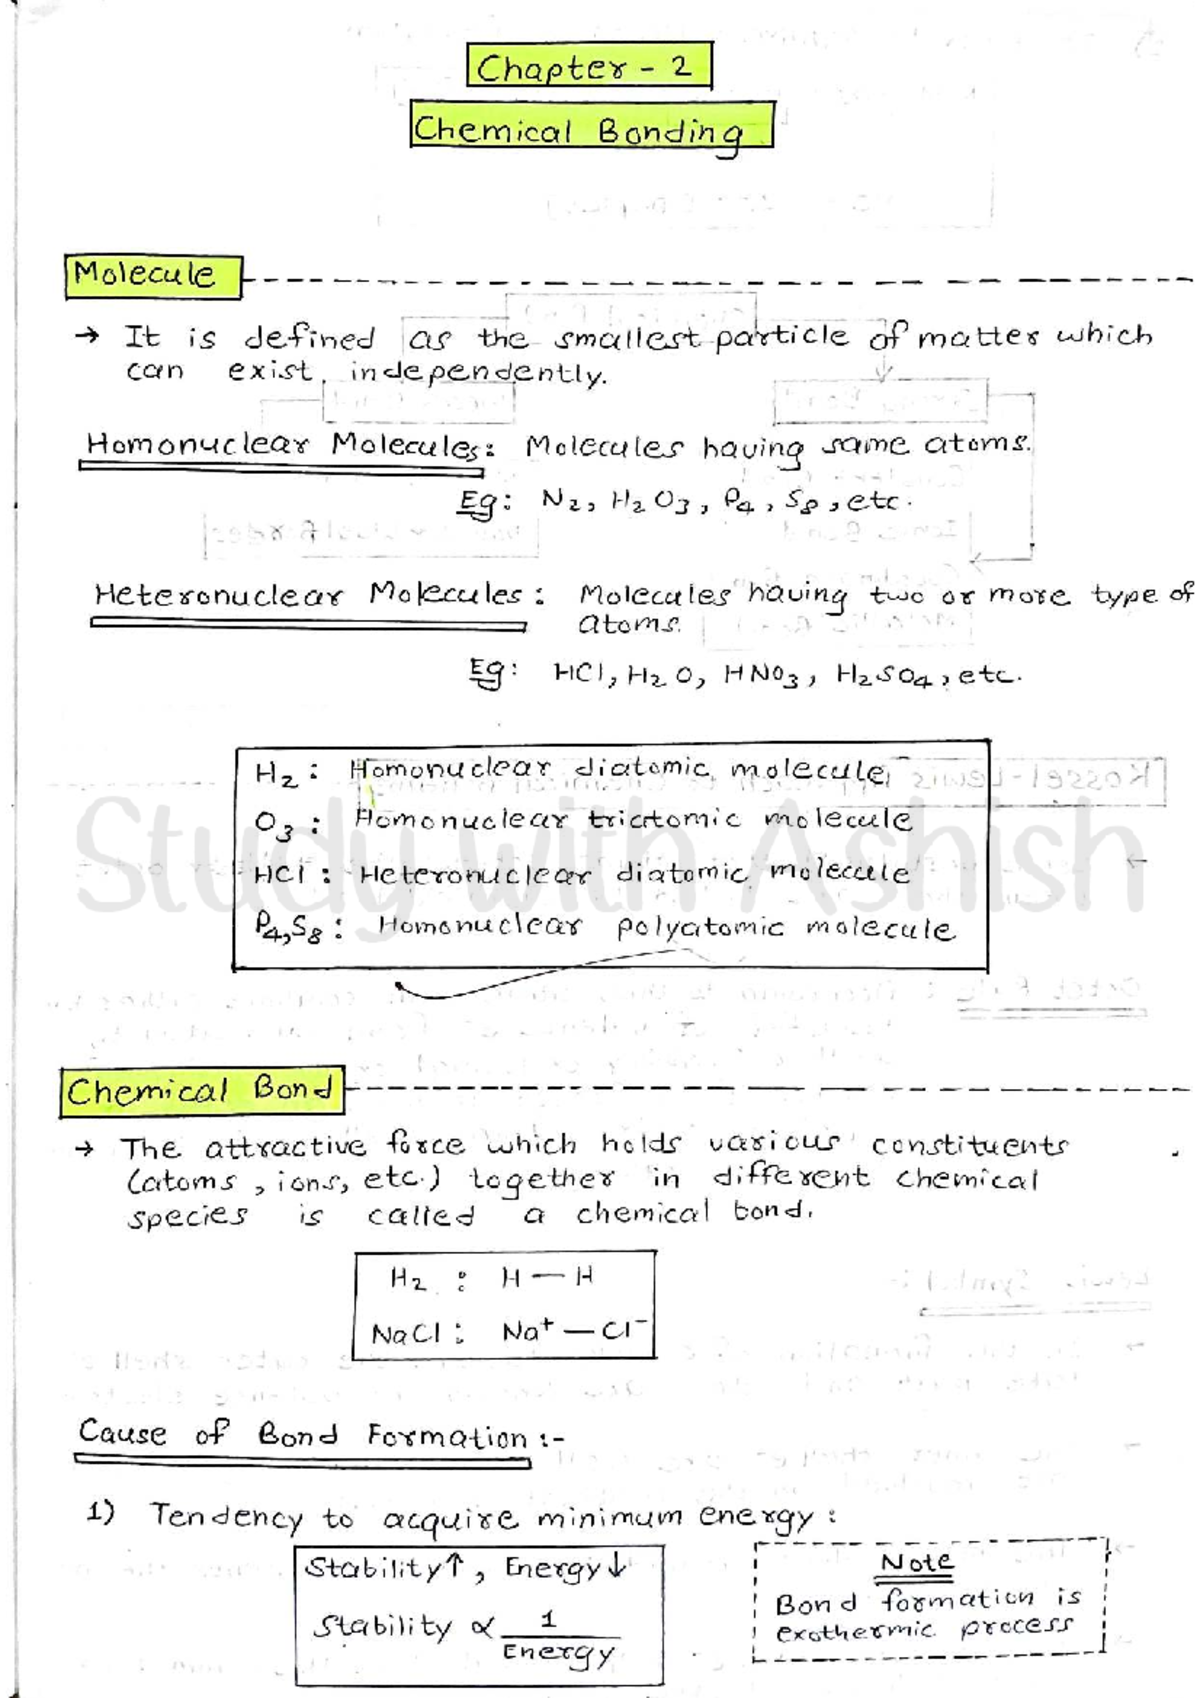 Chapter - 2
Chemical Bonding
Molecule
→ It is defined as the smallest particle of matter which
can exist independently.
Homonuclear Molecules: Molecules having same atoms.
Eg: N₂, H₂ O₃, P₄, S₈, etc.
Heteronuclear Molecules: Molecules having two or more type of
atoms.
Eg: HCl, H₂O, HNO₃, H₂SO₄, etc.
H₂ : Homonuclear diatomic molecule
O₃ : Homonuclear triatomic molecule
HCl : Heteronuclear diatomic molecule
P₄, S₈ : Homonuclear polyatomic molecule
Study with Ashish
Chemical Bond
→ The attractive force which holds various constituents
(atoms, ions, etc.) together in different chemical
species is called a chemical bond.
H₂ : H — H
NaCl : Na⁺ — Cl⁻
Cause of Bond Formation :-
1) Tendency to acquire minimum energy :
Stability↑, Energy↓
Stability ∝ 1/Energy
Note
Bond formation is
exothermic process